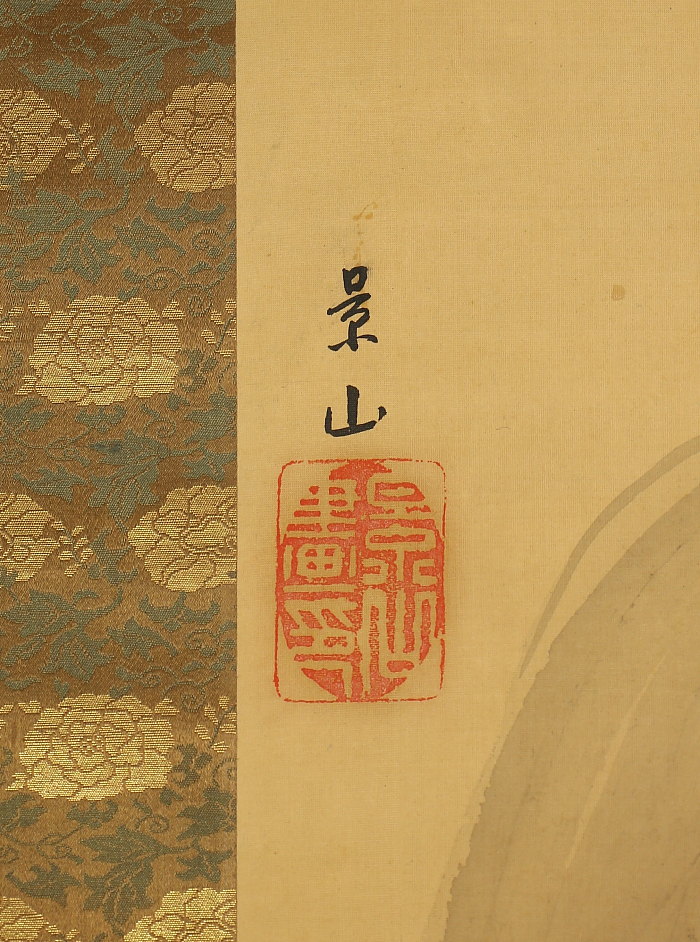 景山
景山
畫印